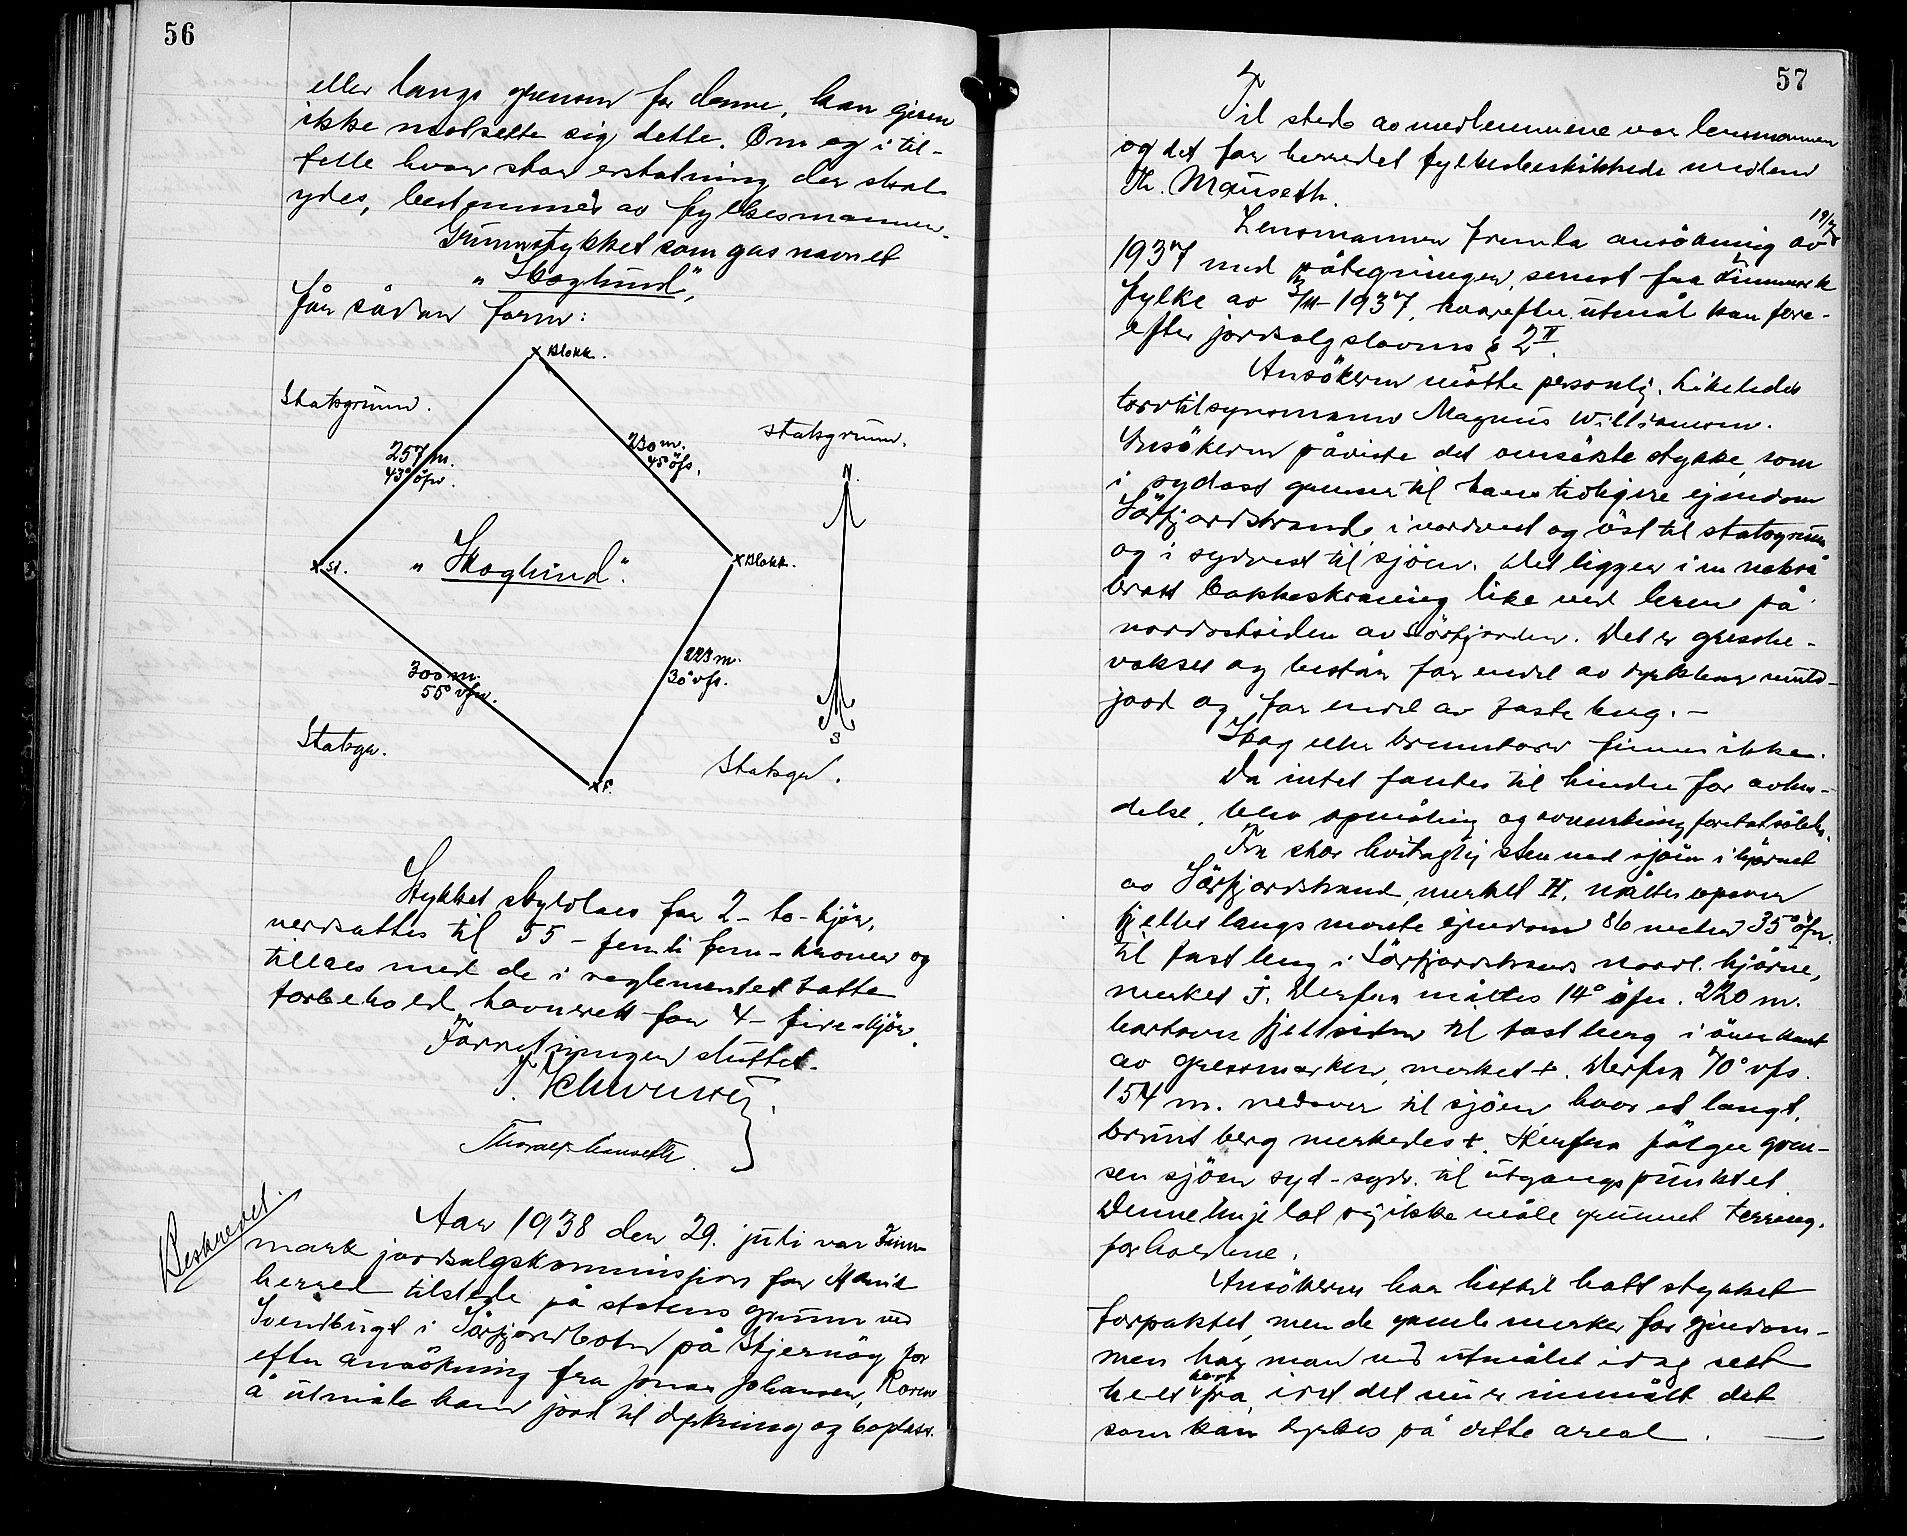 56
eller langs grensen for denne, kan eieren
ikke motsette sig dette. Om og i til-
felle hvor stor erstatning der skal
ydes, bestemmes av fylkesmannen.
Grunnstykket som gas navnet
"Skoglund",
får sådan form:
x Blokk.
Statsgrunn.
statsgrunn.
257 m.
43° öfn.
230 m.
45° öfs.
N.
x St.
"Skoglund".
x Blokk.
300 m.
55° vfn.
223 m.
30° vfs.
S
Statsgr.
Statsgr.
x F.
Stykket skyldlaes for 2 - to - hjör,
verdsattes til 55 - femti fem - kroner og
tillaes med de i reglementet tatte
forbehold havnerett for 4 - fire - kjör.
Forretningen sluttet.
Beskrevet.
Aar 1938 den 29. juli var Finn-
mark jordsalgskommisjon for
herred tilstede på statens grunn ved
i Sörfjordbotn på Stjernöy for
efter ansökning fra Jonas Johansen,
å utmåle ham jord til dyrkning og boplass.
57
Til stede av medlemmene var lensmannen
og det for herredet fylkesbeskikkede medlem
Th. Mauseth.
Lensmannen fremla ansökning av
1937 med påtegninger, senest fra Finnmark
fylke av 1937, hvorefter utmål kan fore-
efter jordsalgslovens § 2 II.
Ansökeren mötte personlig. Likeledes
torvtilsynsmann Magnus Williamsen.
Ansökeren påviste det ansökte stykke, som
i sydost grenser til hans tidligere eiendom
Sörfjordstrand, i nordvest og öst til statsgrunn
og i sydvest til sjöen. Det ligger i en nokså
bratt bakkeskråning like ved leren på
nordostsiden av Sörfjorden. Det er gresse-
vokset og består for endel av dyrkbar muld-
jord og for endel av faste berg. -
Skog eller brenntorv finnes ikke.
Da intet fantes til hinder for avhen-
delse, blev opmåling og avmerkning foretat således.
Fra stor hvitaglig sten ved sjöen i hjörnet
av Sörfjordstrand, merket H, måltes opover
fjellet langs nevnte eiendom 86 meter 35° öfn.
til fast berg i Sörfjordstrands nordl. hjörne,
merket J. Derfra måltes 14° öfn. 220 m.
bortover fjellsiden til fast berg i överkant
av gressmarken, merket +. Derfra 70° vfs.
154 m. nedover til sjöen hvor et langt,
brunt berg merkedes +. Herfra fölger gren-
sen sjöen syd-sydö. til utgangspunktet.
Denne linje lot sig ikke måle grunnet terreng-
forholdene.
Ansökeren har hittil hatt stykket
forpaktet, men de gamle merker for eiendom-
men har man ved utmålet idag sett
helt bort fra, idet det nu er innmålt det
som kan dyrkes på dette areal.